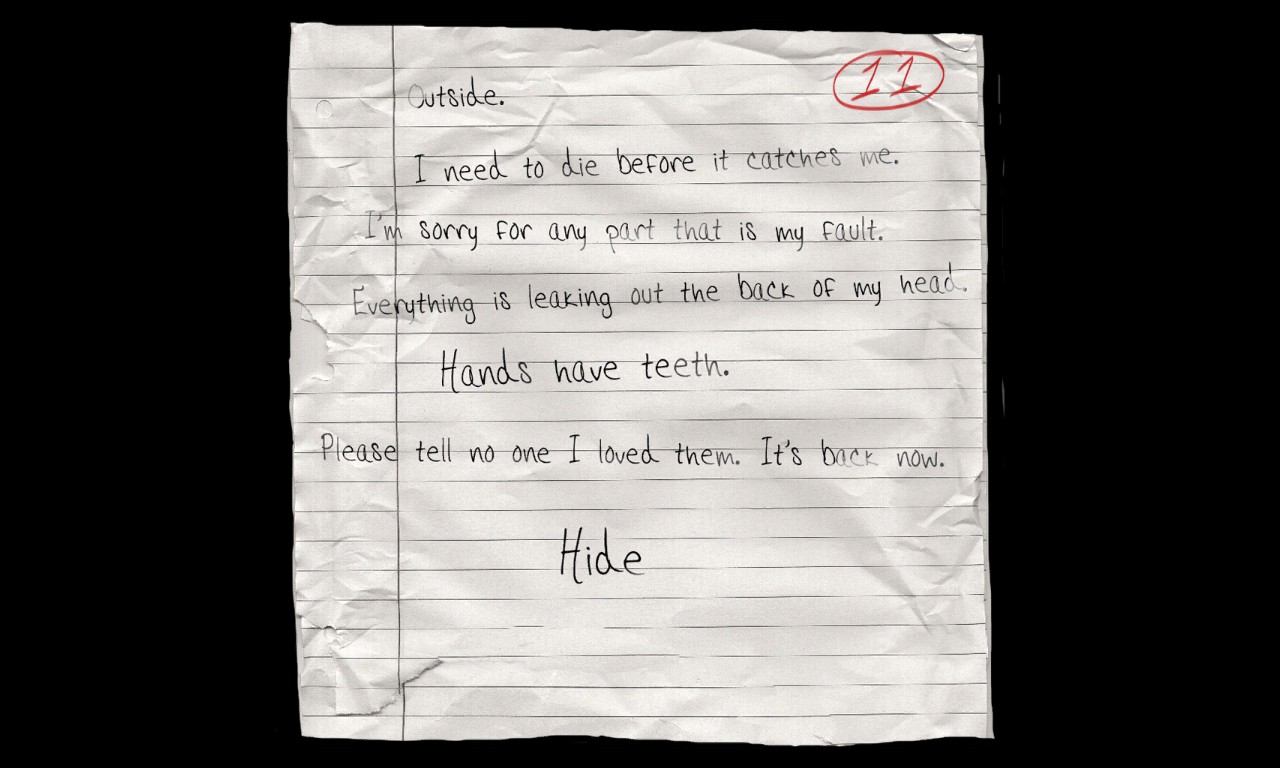 11
Outside.
I need to die before it catches me.
I'm sorry for any part that is my fault.
Everything is leaking out the back of my head.
Hands have teeth.
Please tell no one I loved them. It's back now.
Hide